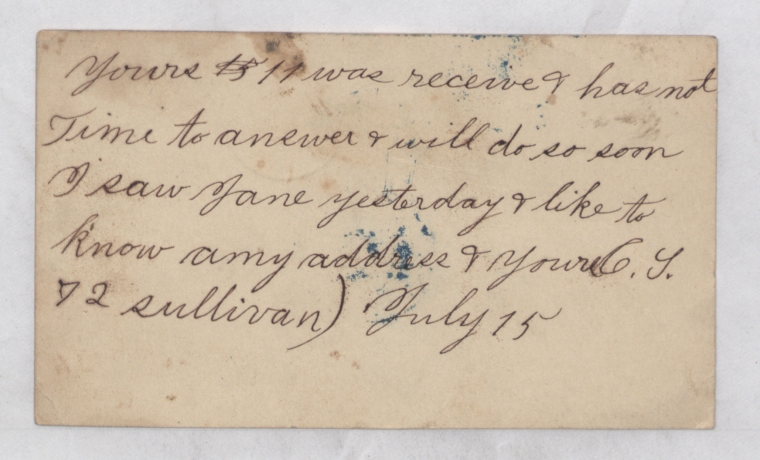 Yours 11 was receive & has not
Time to answer & will do so soon
I saw Jane yesterday & like to
know amy address & Yours C. S.
72 sullivan) July 15